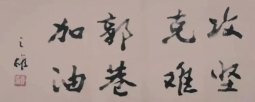 攻坚
克难
郭巷
加油
之雄